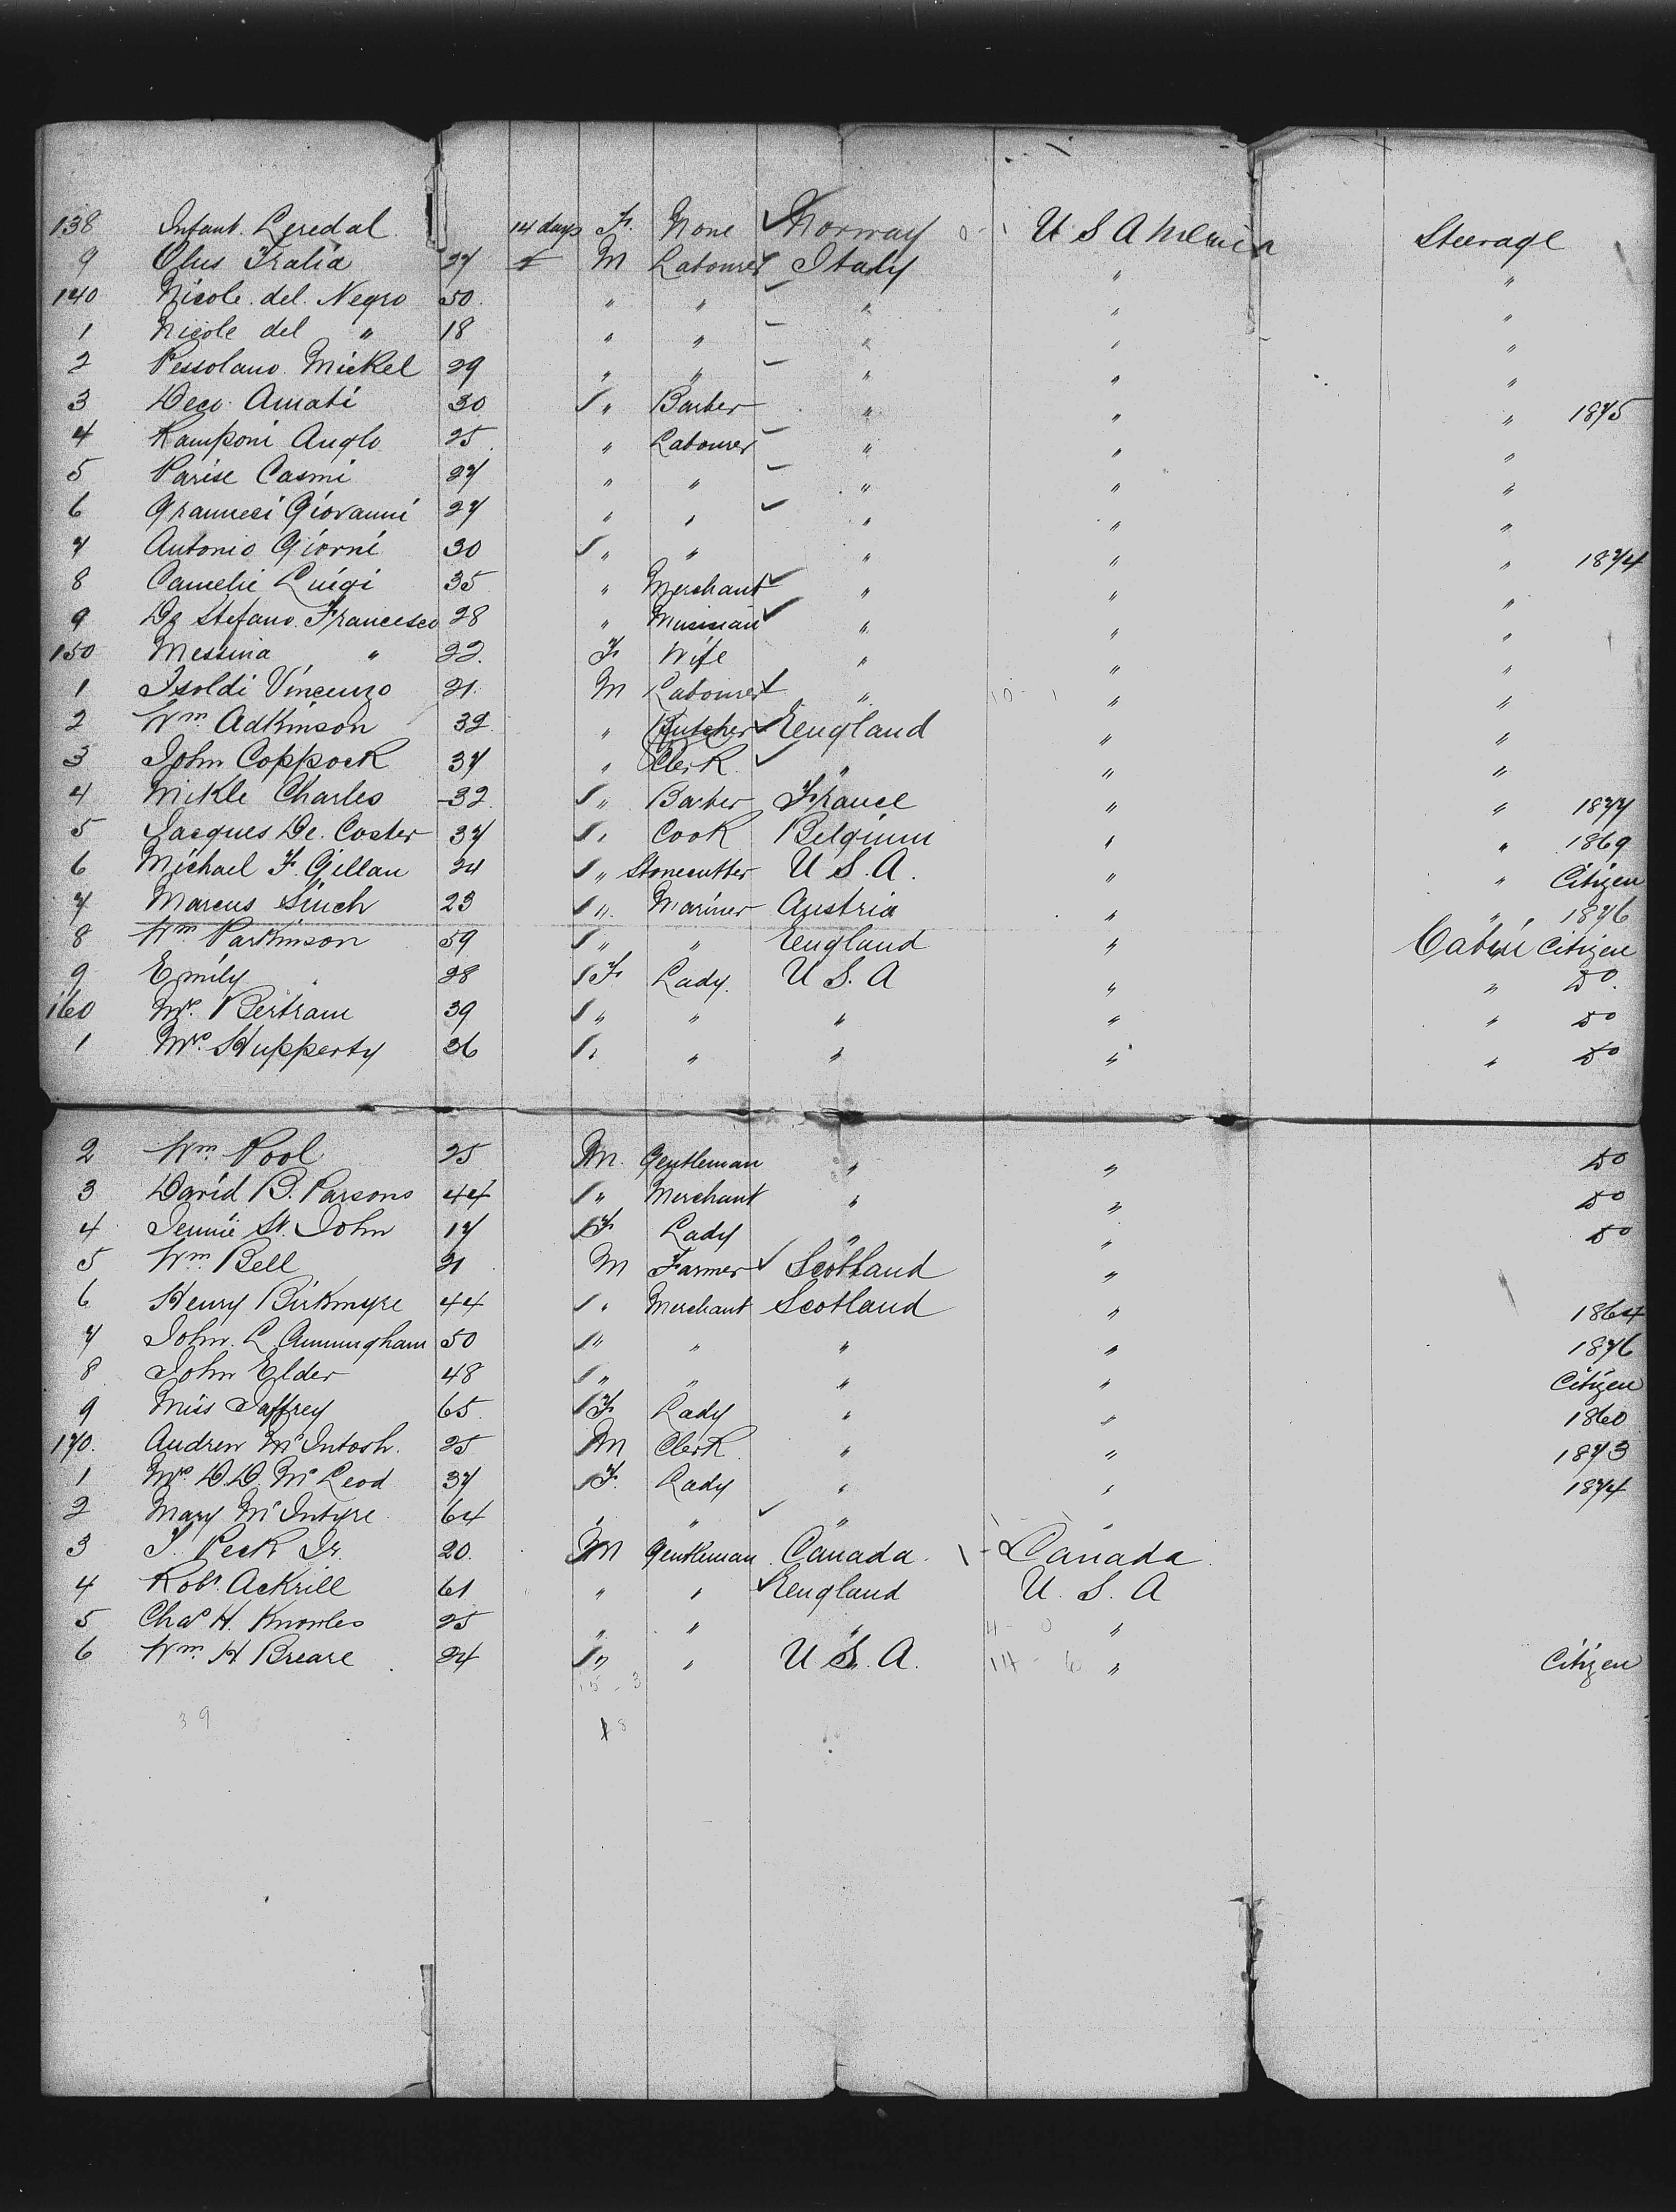 138 Infant Leredal 14 days F. None Norway U S America Steerage
9 Olus Fralia 27 M Labourer Italy " "
140 Nicole del Negro 50 " " " " "
1 Nicole del " 18 " " " " "
2 Pessolano Mickel 29 " " " " "
3 Deco Amati 30 " Barber " " " 1875
4 Kamponi Anglo 25 " Labourer " " "
5 Parise Casmi 27 " " " " "
6 Grannesi Giovanni 27 " " " " "
7 Antonio Giorni 30 " " " " " 1874
8 Camelie Luigi 35 " Merchant " " "
9 De Stefano Francesco 28 " Musician " " "
150 Messina " 22 F Wife " " "
1 Isoldi Vincenzo 21 M Labourer " " "
2 Wm Adkinson 32 " Butcher England " "
3 John Coppock 37 " Clerk " " "
4 Mikle Charles 32 " Barber France " " 1877
5 Jacques De Coster 37 " Cook Belgium " " 1869
6 Michael F. Gillan 24 " Stonecutter U S. A. " " Citizen
7 Marcus Sinch 23 " Mariner Austria " " 1876
8 Wm Parkinson 59 " " England " Cabin Citizen
9 Emily 28 F Lady U S. A " " Do
160 Mrs Bertram 39 " " " " " Do
1 Mrs Hupperty 36 " " " " " Do
2 Wm Pool 25 M. Gentleman " " Do
3 David B. Parsons 44 " Merchant " " Do
4 Jennie St. John 17 F Lady " " Do
5 Wm Bell 21 M Farmer Scotland "
6 Henry Birkmyre 44 " Merchant Scotland " 1864
7 John L Cunningham 50 " " " " 1876
8 John Elder 48 " " " " Citizen
9 Miss Jaffrey 65 F Lady " " 1860
170. Andrew McIntosh. 25 M Clerk " " 1873
1 Mrs D. D. McLeod 37 F. Lady " " 1874
2 Mary McIntyre 64 " " " "
3 J. Peck Jr. 20 M Gentleman Canada. Canada
4 Robt Ackrill 61 " " England U. S. A
5 Chas H. Knowles 25 " " " "
6 Wm H Breare 24 " " U S. A. " Citizen
15 - 3
39